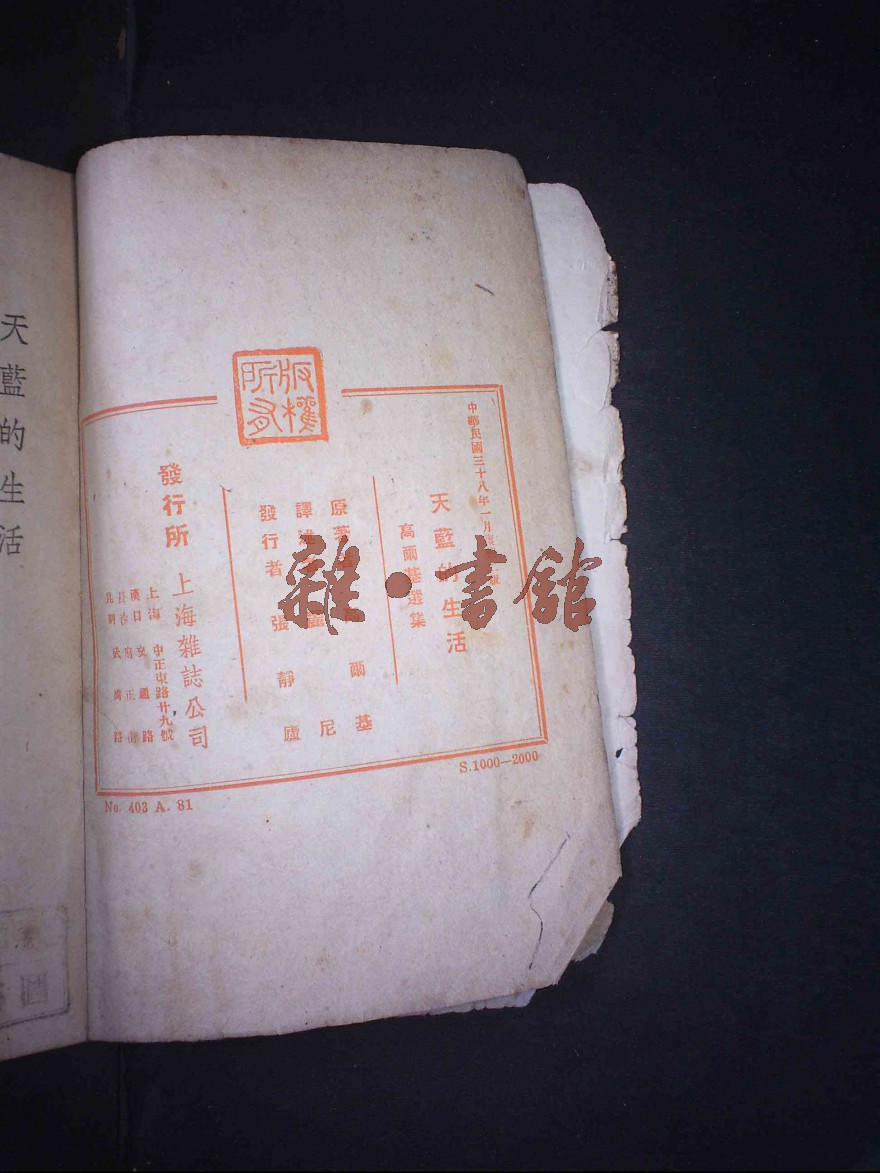 天藍的生活
版權所有
中華民國三十八年一月
版
天藍的生活
高爾基選集
原著 爾基
譯 麗尼
發行者 張靜廬
發行所 上海雜誌公司
上海 中正東路廿九號
漢口 路
長沙 正路
昆明 武 路
S.1000—2000
No. 403 A. 81
雜·書館
圖